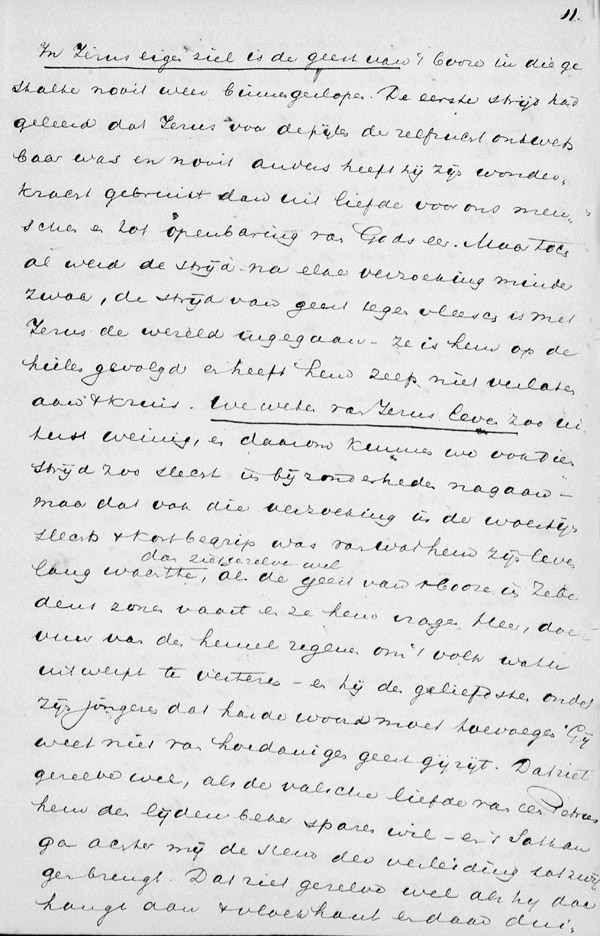 11.
In Jezus eigen ziel is de geest van 't booze in die ge
stalte nooit weer binnengeslopen. De eerste strijd had
geleerd dat Jezus voor de pijlen der zelfzucht onkwets
baar was en nooit anders heeft hij zijn wonder-
kracht gebruikt dan uit liefde voor ons men-
schen en tot openbaring van Gods eer. Maar toch
al werd de strijd na elke verzoeking minder
zwaar, de strijd van geest tegen vleesch is met
Jezus de wereld ingegaan – ze is hem op de
hielen gevolgd en heeft hem zelfs niet verlaten
aan 't kruis. We weten van Jezus leven zoo ui
terst weinig, en daarom kunnen we ook dien
strijd zoo slecht in bijzonderheden nagaan –
maar dat ook die verzoeking in de woestijn
slechts 't kort begrip was van wat hem zijn leven
lang wachtte, dat zien we wel als de geest van 't booze in Zebe
deus zonen vaart en ze hem vragen Heer, doe
vuur van den hemel regenen om 't volk wat u
uitwerpt te verteren – en hij den geliefdsten onder
zijn jongeren dat harde woord moet toevoegen "Gij
weet niet van hoedanigen geest gij zijt. Dat ziet
ge eve wel, als de valsche liefde van een Petrus
hem den lijdensbeker sparen wil – en 't Sathan
ga achter mij de stem der verleiding tot zwij
gen brengt. Dat ziet ge wel als hij daar
hangt aan 't vloekhout en daar dui-